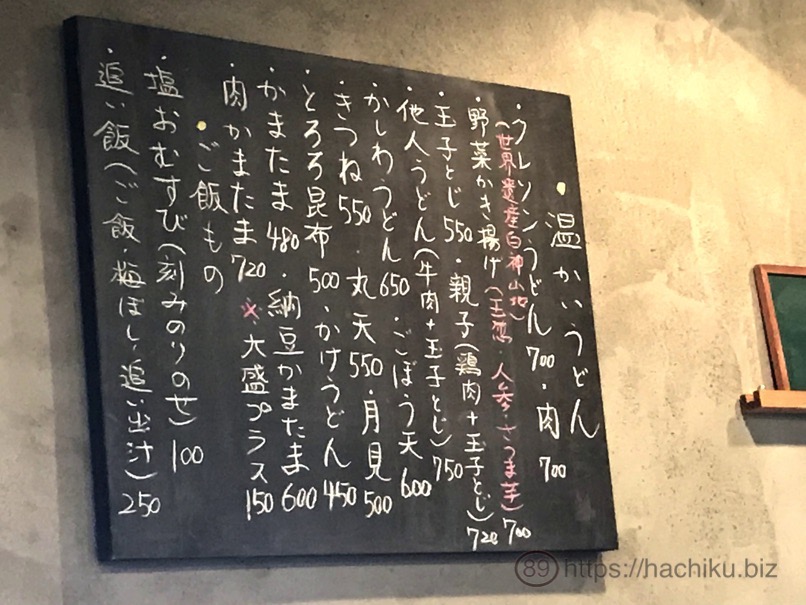 ・温かいうどん
・クレソンうどん 700 ・肉 700
(世界遺産白神山地)
・野菜かき揚げ(玉葱・人参・さつま芋) 700
・玉子とじ 550 ・親子(鶏肉+玉子とじ) 720
・他人うどん(牛肉+玉子とじ) 750
・かしわうどん 650 ・ごぼう天 600
・きつね 550 ・丸天 550 ・月見 500
・とろろ昆布 500 ・かけうどん 450
・かまたま 480 ・納豆かまたま 600
・肉かまたま 720 ※大盛プラス 150
・ご飯もの
・塩おむすび(刻みのりのせ) 100
・追い飯(ご飯・梅ぼし・追い出汁) 250
89 https://hachiku.biz